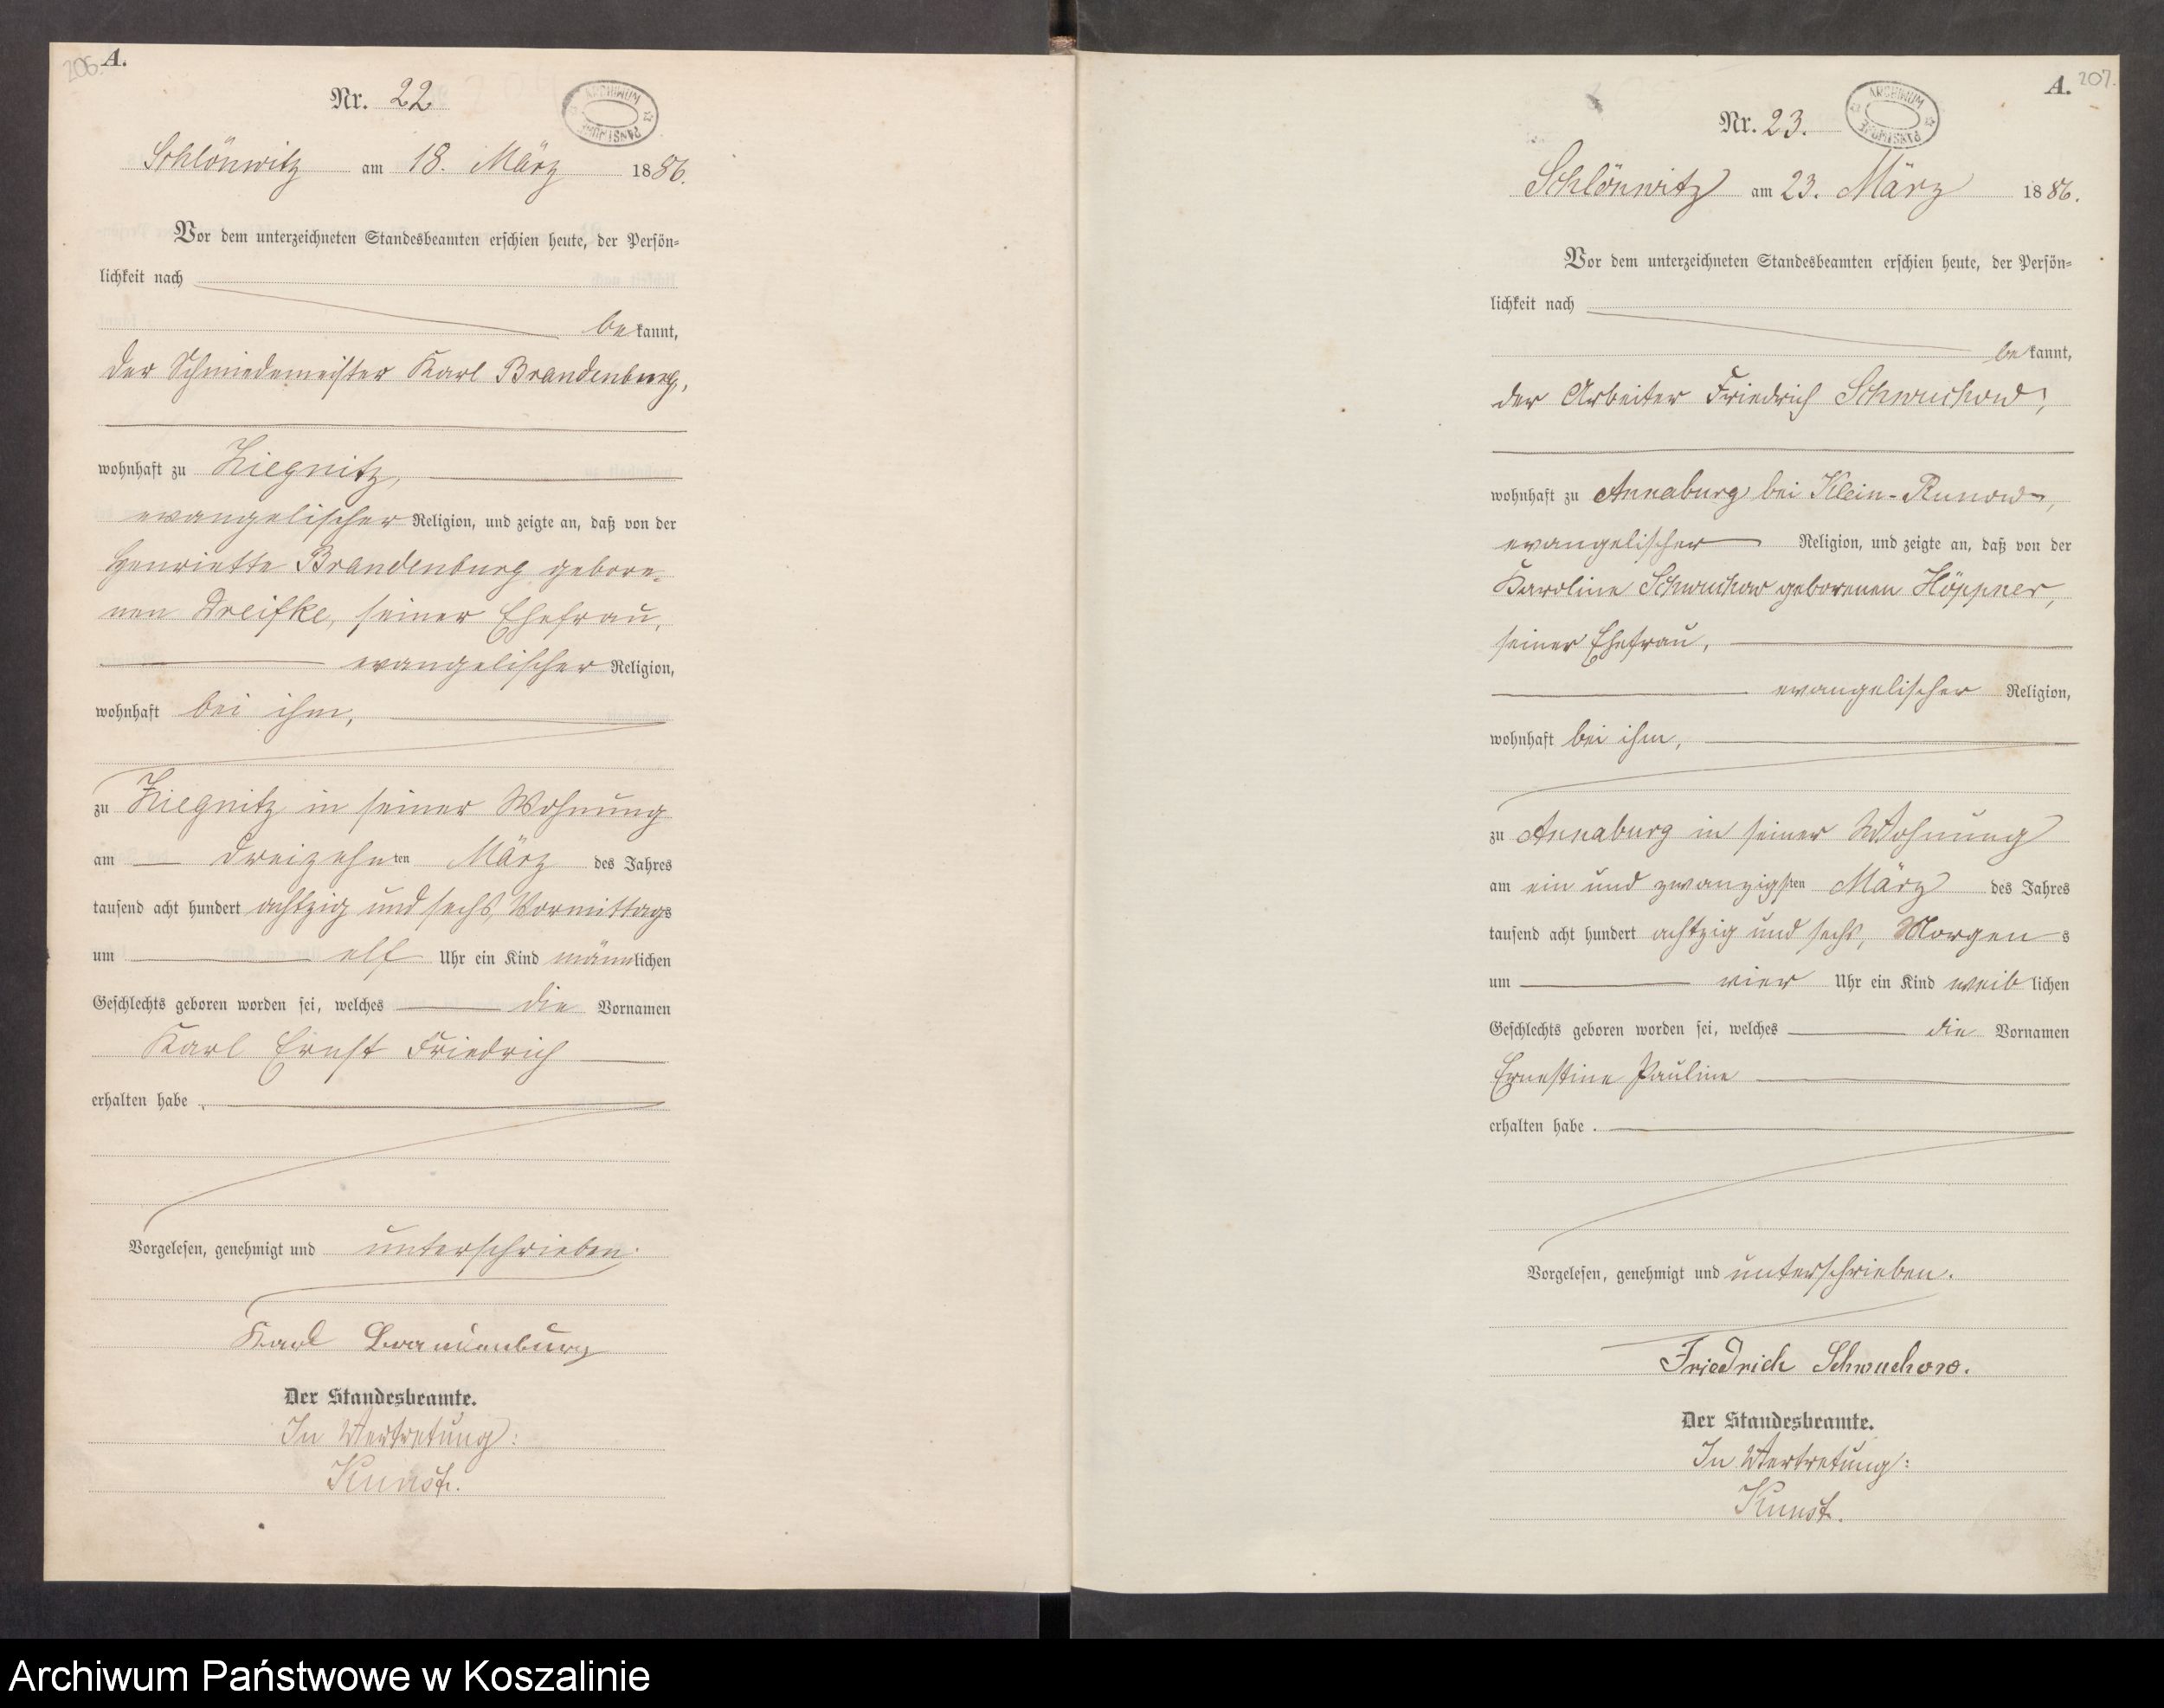 206.
A.
Nr. 22
ARCHIWUM PAŃSTWOWE
Schlönwitz am 18. März 1886.
Vor dem unterzeichneten Standesbeamten erschien heute, der Persön-
lichkeit nach
bekannt,
der Schmiedemeister Karl Brandenburg,
wohnhaft zu Ziegnitz,
evangelischer Religion, und zeigte an, daß von der
Henriette Brandenburg gebore-
nen Dreifke, seiner Ehefrau,
evangelischer Religion,
wohnhaft bei ihm,
zu Ziegnitz in seiner Wohnung
am dreizehnten März des Jahres
tausend acht hundert achtzig und sechs, Vormittags
um elf Uhr ein Kind männlichen
Geschlechts geboren worden sei, welches die Vornamen
Karl Ernst Friedrich
erhalten habe.
Vorgelesen, genehmigt und unterschrieben.
Karl Brandenburg
Der Standesbeamte.
In Vertretung:
Kunst.
A.
207.
Nr. 23.
ARCHIWUM PAŃSTWOWE
Schlönwitz am 23. März 1886.
Vor dem unterzeichneten Standesbeamten erschien heute, der Persön-
lichkeit nach
bekannt,
der Arbeiter Friedrich Schwuchow,
wohnhaft zu Annaburg bei Klein-Runow,
evangelischer Religion, und zeigte an, daß von der
Karoline Schwuchow geborenen Höppner,
seiner Ehefrau,
evangelischer Religion,
wohnhaft bei ihm,
zu Annaburg in seiner Wohnung
am ein und zwanzigsten März des Jahres
tausend acht hundert achtzig und sechs, Morgens
um vier Uhr ein Kind weiblichen
Geschlechts geboren worden sei, welches die Vornamen
Ernestine Pauline
erhalten habe.
Vorgelesen, genehmigt und unterschrieben.
Friedrich Schwuchow.
Der Standesbeamte.
In Vertretung:
Kunst.
Archiwum Państwowe w Koszalinie